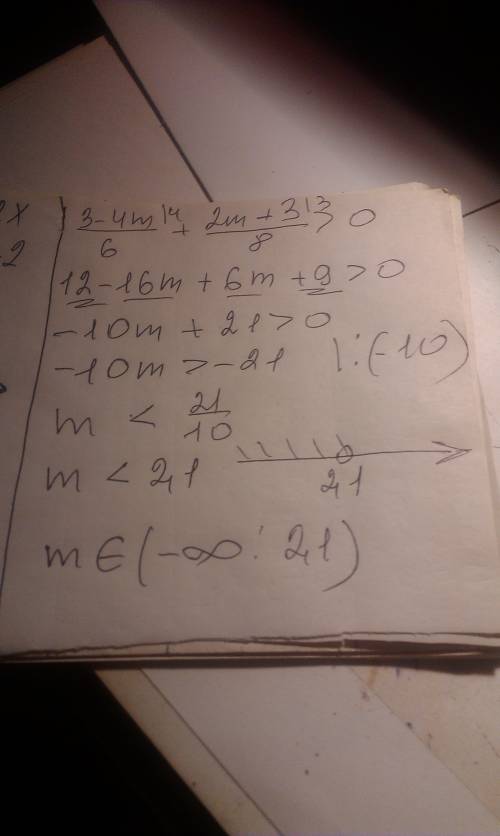 3-4m|4 / 6 + 2m+3|3 / 8 > 0
12-16m+6m+9>0
-10m+21>0
-10m>-21 |:(-10)
m < 21/10
m < 2,1
2,1
m∈(-∞; 2,1)